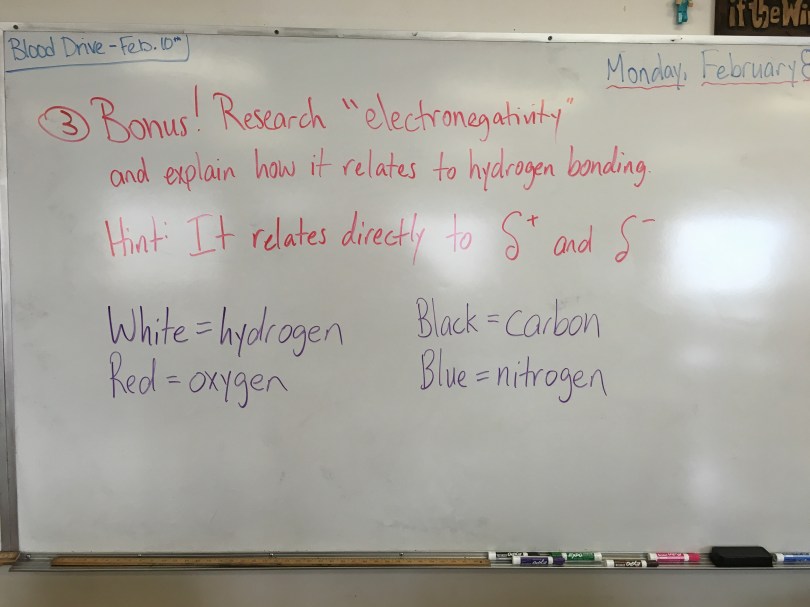 Blood Drive - Feb. 10th
if the Wi
Monday, February 8
③ Bonus! Research "electronegativity"
and explain how it relates to hydrogen bonding.
Hint: It relates directly to δ⁺ and δ⁻
White = hydrogen
Black = carbon
Red = oxygen
Blue = nitrogen
EXPO